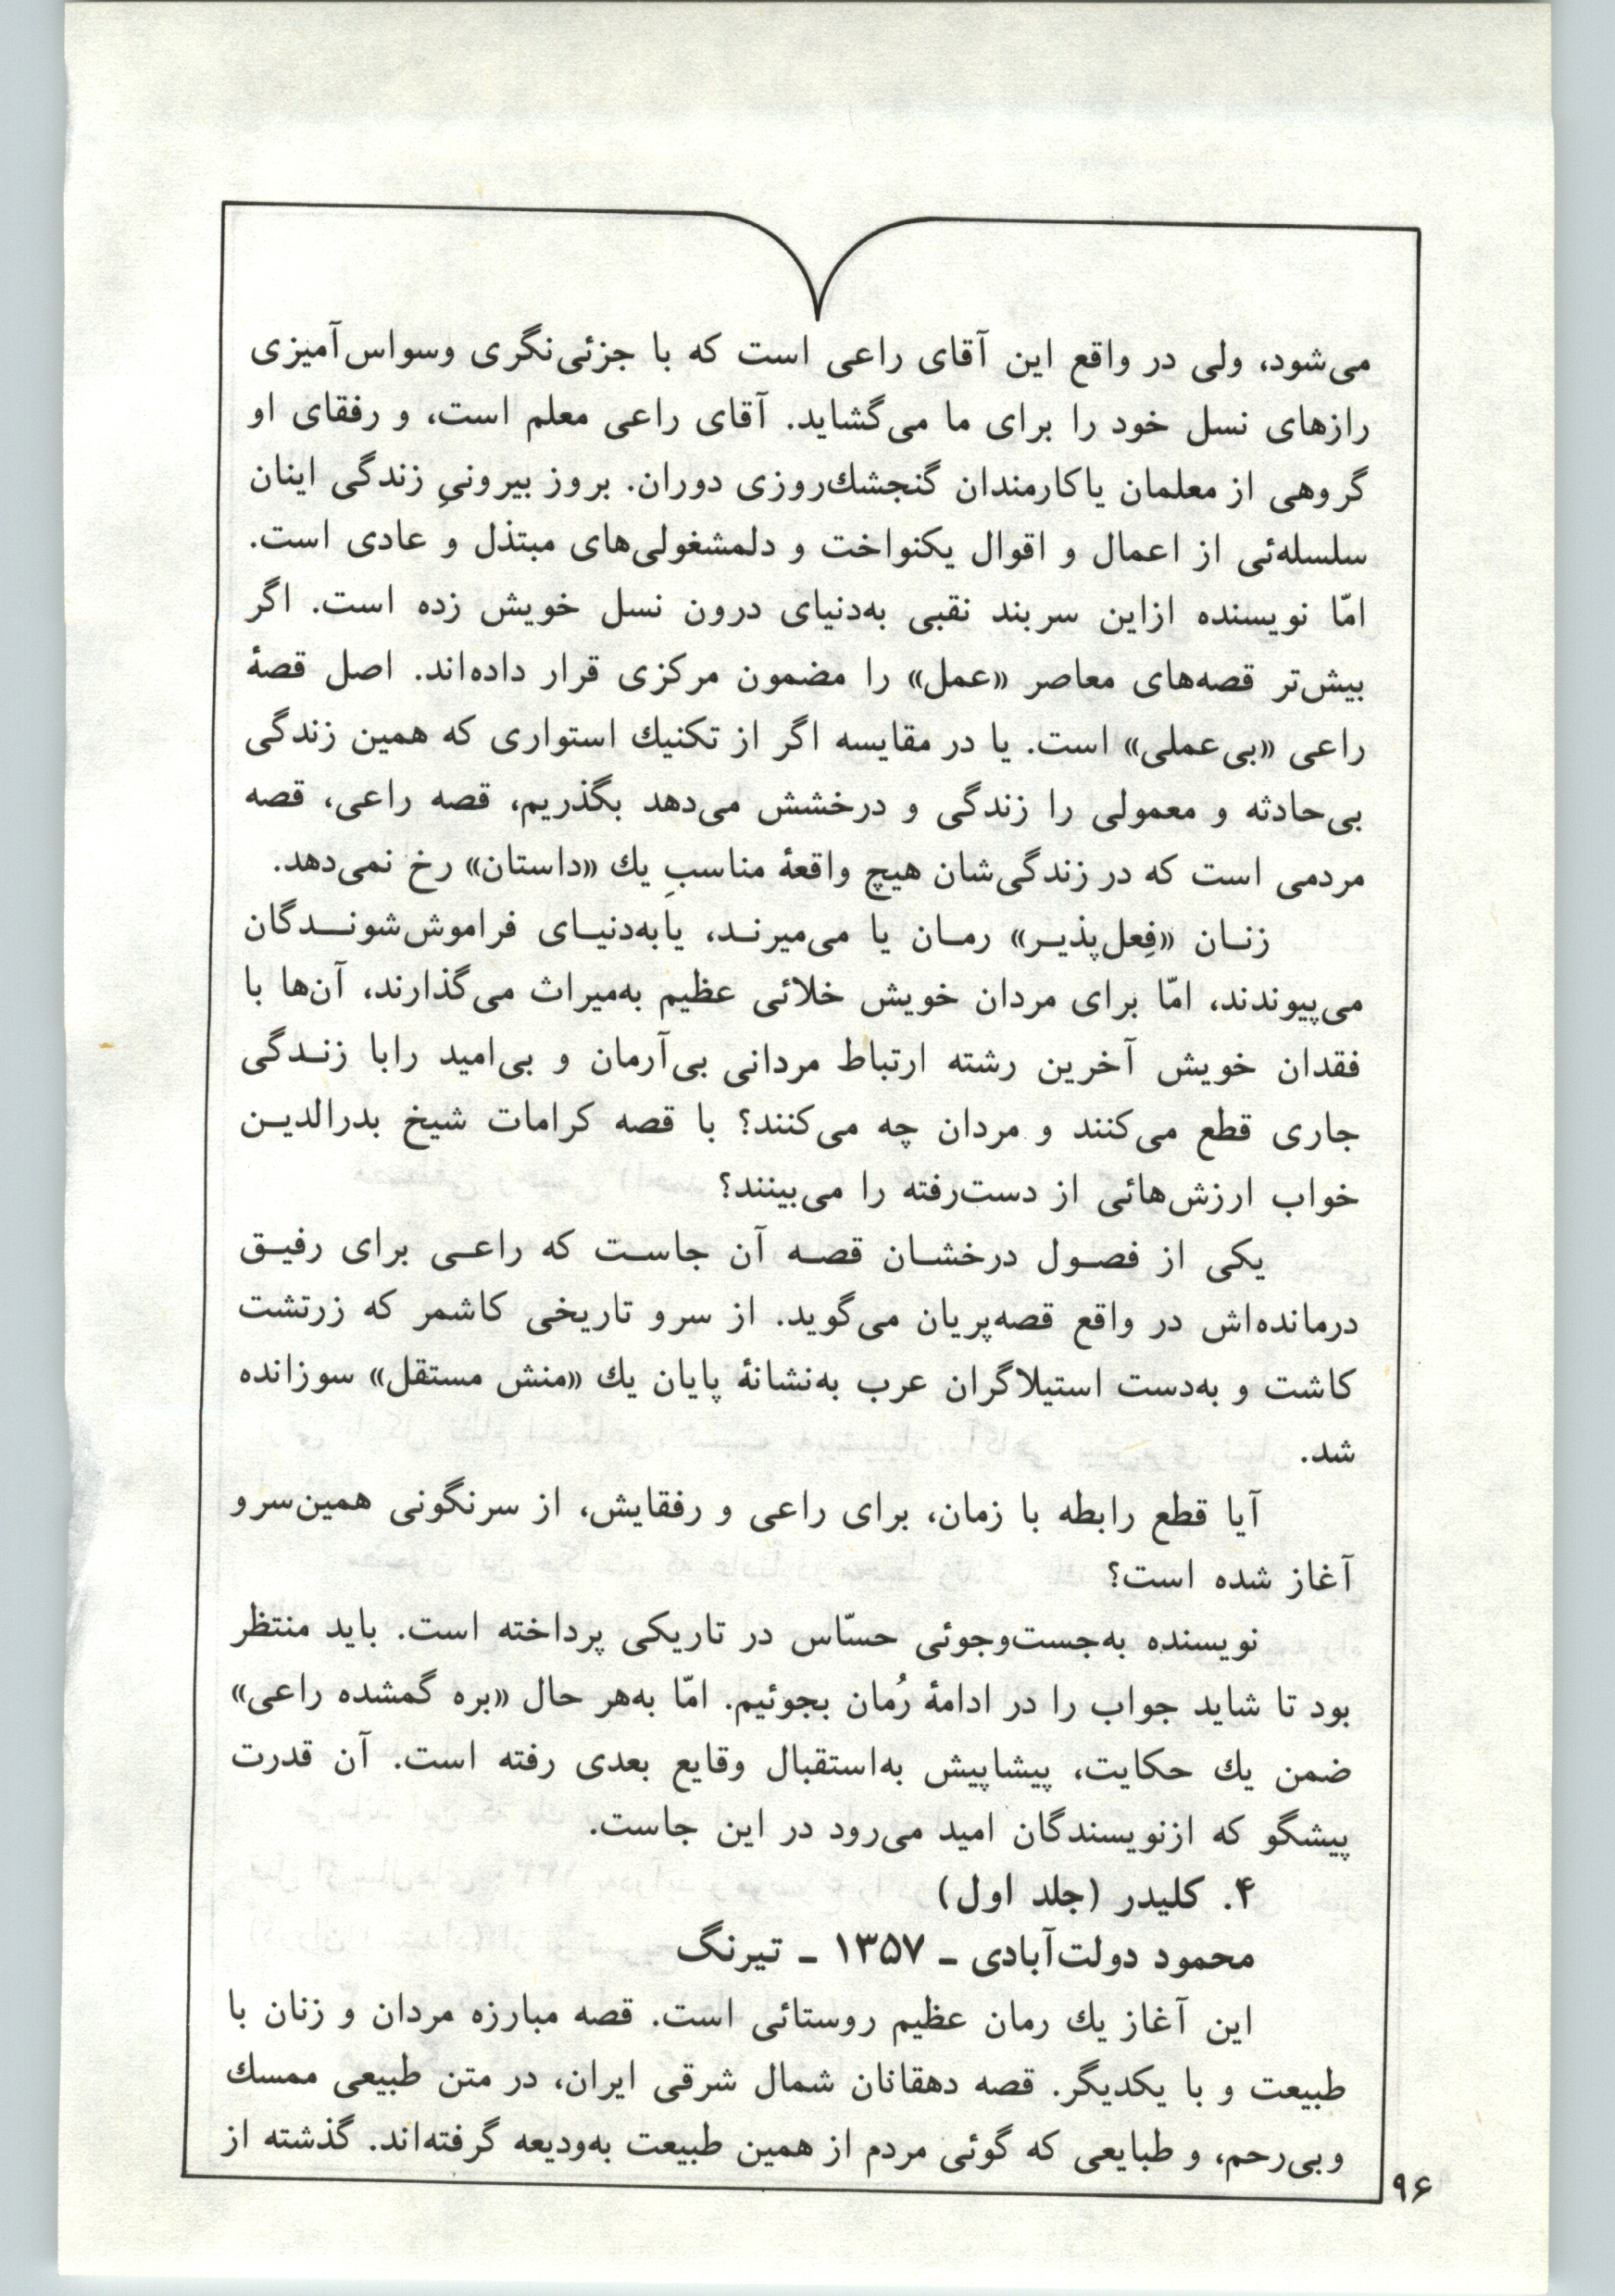 می‌شود، ولی در واقع این آقای راعی است که با جزئی‌نگری وسواس‌آمیزی
رازهای نسل خود را برای ما می‌گشاید. آقای راعی معلم است، و رفقای او
گروهی از معلمان یاکارمندان گنجشك‌روزی دوران. بروز بیرونیِ زندگی اینان
سلسله‌ئی از اعمال و اقوال یکنواخت و دلمشغولی‌های مبتذل و عادی است.
امّا نویسنده ازاین سربند نقبی به‌دنیای درون نسل خویش زده است. اگر
بیش‌تر قصه‌های معاصر «عمل» را مضمون مرکزی قرار داده‌اند. اصل قصهٔ
راعی «بی‌عملی» است. یا در مقایسه اگر از تکنیك استواری که همین زندگی
بی‌حادثه و معمولی را زندگی و درخشش می‌دهد بگذریم، قصه راعی، قصه
مردمی است که در زندگی‌شان هیچ واقعهٔ مناسبِ یك «داستان» رخ نمی‌دهد.
زنـان «فِعل‌پذیـر» رمـان یا می‌میرنـد، یابه‌دنیـای فراموش‌شونـدگان
می‌پیوندند، امّا برای مردان خویش خلائی عظیم به‌میراث می‌گذارند، آن‌ها با
فقدان خویش آخرین رشته ارتباط مردانی بی‌آرمان و بی‌امید رابا زنـدگی
جاری قطع می‌کنند و مردان چه می‌کنند؟ با قصه کرامات شیخ بدرالدیـن
خواب ارزش‌هائی از دست‌رفته را می‌بینند؟
یکی از فصـول درخشـان قصـه آن جاسـت که راعـی برای رفیـق
درمانده‌اش در واقع قصه‌پریان می‌گوید. از سرو تاریخی کاشمر که زرتشت
کاشت و به‌دست استیلاگران عرب به‌نشانهٔ پایان یك «منش مستقل» سوزانده
شد.
آیا قطع رابطه با زمان، برای راعی و رفقایش، از سرنگونی همین‌سرو
آغاز شده است؟
نویسنده به‌جست‌وجوئی حسّاس در تاریکی پرداخته است. باید منتظر
بود تا شاید جواب را در ادامهٔ رُمان بجوئیم. امّا به‌هر حال «بره گمشده راعی»
ضمن یك حکایت، پیشاپیش به‌استقبال وقایع بعدی رفته است. آن قدرت
پیشگو که ازنویسندگان امید می‌رود در این جاست.
۴. کلیدر (جلد اول)
محمود دولت‌آبادی ـ ۱۳۵۷ ـ تیرنگ
این آغاز یك رمان عظیم روستائی است. قصه مبارزه مردان و زنان با
طبیعت و با یکدیگر. قصه دهقانان شمال شرقی ایران، در متن طبیعی ممسك
وبی‌رحم، و طبایعی که گوئی مردم از همین طبیعت به‌ودیعه گرفته‌اند. گذشته از
۹۶